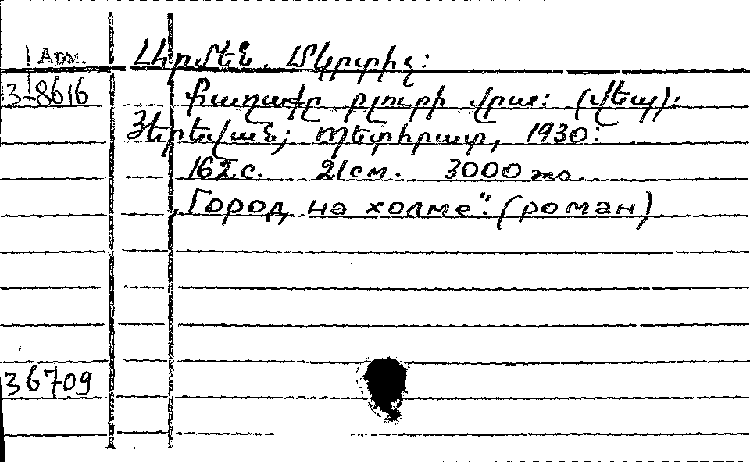 Арм. Արմեն Մկրտիչ։
3-8616 Քաղաքը բլուրի վրա։ (վեպ)։
Յերեվան; Պետհրատ, 1930։
162 с. 21 см. 3000 экз.
„Город на холме“. (роман)
36709